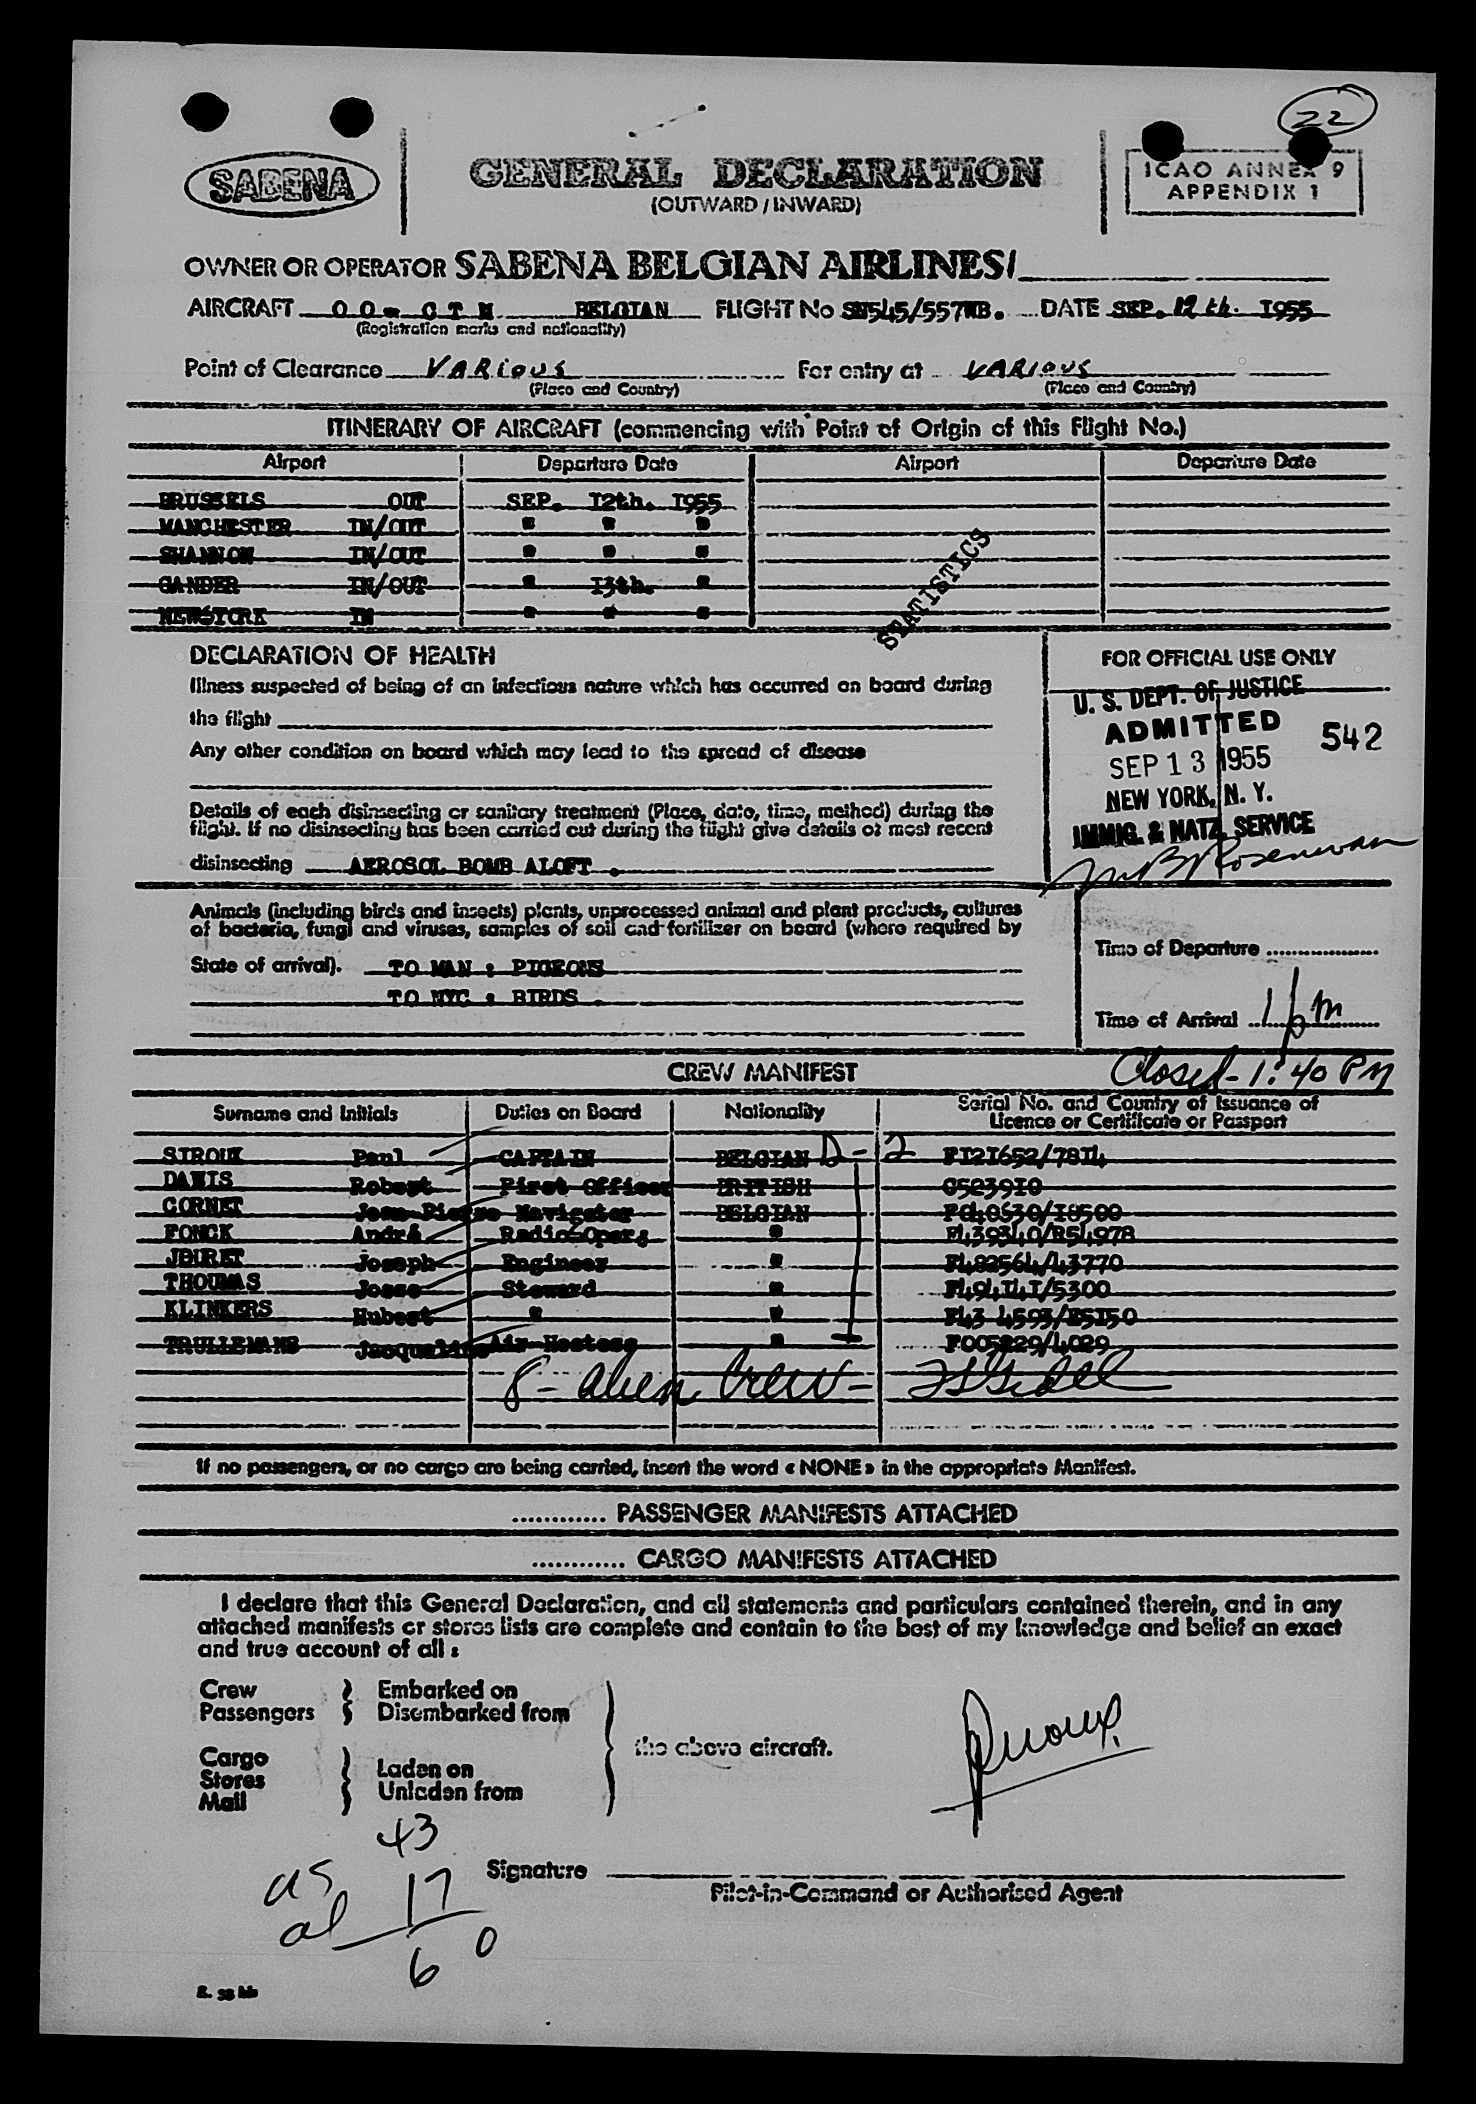 22
SABENA
GENERAL DECLARATION
(OUTWARD / INWARD)
ICAO ANNEX 9
APPENDIX 1
OWNER OR OPERATOR SABENA BELGIAN AIRLINES/
AIRCRAFT OO - C T BELGIAN FLIGHT No SN545/557WB. DATE SEP. 12th. 1955
(Registration marks and nationality)
Point of Clearance VARIOUS For entry at VARIOUS
(Place and Country) (Place and Country)
ITINERARY OF AIRCRAFT (commencing with Point of Origin of this Flight No.)
Airport Departure Date Airport Departure Date
BRUSSELS OUT SEP. I2th. I955
MANCHESTER IN/OUT " " "
SHANNON IN/OUT " " "
GANDER IN/OUT " I3th. "
NEWYORK IN " " "
STATISTICS
DECLARATION OF HEALTH
Illness suspected of being of an infectious nature which has occurred on board during
the flight
Any other condition on board which may lead to the spread of disease
Details of each disinsecting or sanitary treatment (Place, date, time, method) during the
flight. If no disinsecting has been carried out during the flight give details of most recent
disinsecting AEROSOL BOMB ALOFT .
FOR OFFICIAL USE ONLY
U. S. DEPT. OF JUSTICE
ADMITTED 542
SEP 13 1955
NEW YORK, N. Y.
IMMIG. & NATZ. SERVICE
Animals (including birds and insects) plants, unprocessed animal and plant products, cultures
of bacteria, fungi and viruses, samples of soil and fertilizer on board (where required by
State of arrival). TO MAN : PIGEONS
TO NYC : BIRDS .
Time of Departure
Time of Arrival 1 pm
Closed - 1:40 PM
CREW MANIFEST
Surname and Initials Duties on Board Nationality Serial No. and Country of Issuance of
Licence or Certificate or Passport
SIROUX Paul CAPTAIN BELGIAN D-2 FI2I652/78I4
DAVIS Robert First Officer BRITISH C5239I0
CORNET Jean-Pierre Navigator BELGIAN I8500
FONCK André Radio-Oper. " F439340/R54978
JOURET Joseph Engineer " F482564/43770
THOUMAS Josse Steward " F494I4I/5300
KLINKERS Hubert " " F43 4593/E5I50
TRULLEMANS Jacqueline Air Hostess " F005829/4029
8 - alien Crew -
If no passengers, or no cargo are being carried, insert the word « NONE » in the appropriate Manifest.
............ PASSENGER MANIFESTS ATTACHED
............ CARGO MANIFESTS ATTACHED
I declare that this General Declaration, and all statements and particulars contained therein, and in any
attached manifests or stores lists are complete and contain to the best of my knowledge and belief an exact
and true account of all :
Crew Embarked on
Passengers Disembarked from
the above aircraft.
Cargo
Stores Laden on
Mail Unladen from
43
us 17
al
6 0
Signature
Pilot-in-Command or Authorised Agent